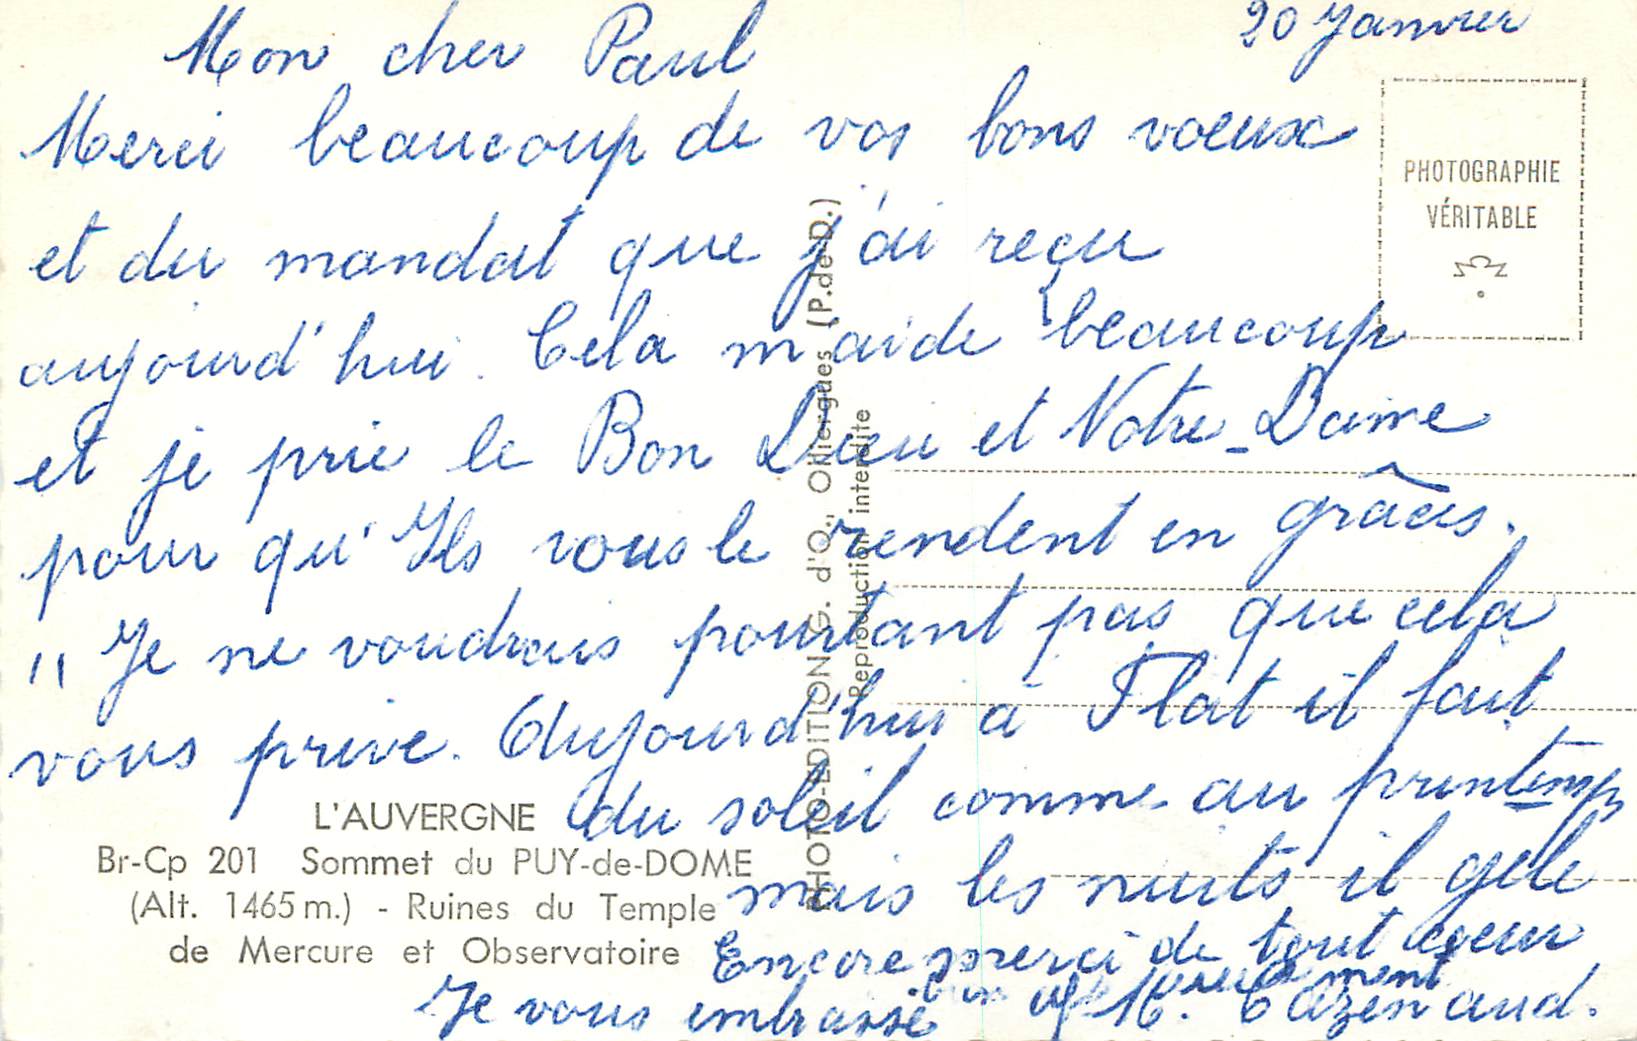 20 Janvier
Mon cher Paul
Merci beaucoup de vos bons voeux
et du mandat que j'ai reçu
aujourd'hui. Cela m'aide beaucoup
et je prie le Bon Dieu et Notre-Dame
pour qu'Ils vous le rendent en grâces.
" Je ne voudrais pourtant pas que cela
vous prive. Aujourd'hui à Flat il fait
du soleil comme au printemps
mais les nuits il gèle
Encore merci de tout coeur
Je vous embrasse bien affectueusement
M. Cazenaud.
PHOTOGRAPHIE
VÉRITABLE
L'AUVERGNE
Br-Cp 201 Sommet du PUY-de-DOME
(Alt. 1465 m.) - Ruines du Temple
de Mercure et Observatoire
PHOTO-EDITION G. d'O., Olliergues (P.-de-D.)
Reproduction interdite